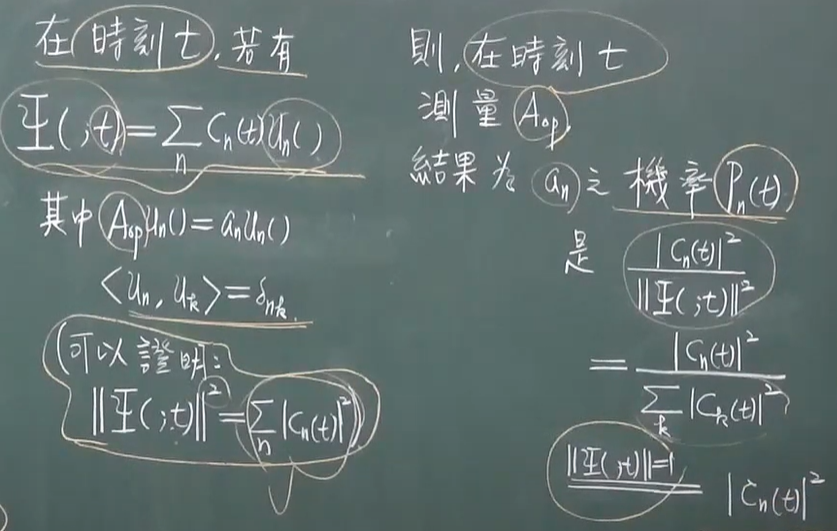 在時刻t,若有
Ψ(;t)=∑ₙCₙ(t)uₙ()
其中Aₒₚuₙ()=aₙuₙ()
<uₙ,uₖ>=δₙₖ.
(可以證明:
‖Ψ(;t)‖²=∑ₙ|Cₙ(t)|²)
則,在時刻t
測量Aₒₚ,
結果為aₙ之機率Pₙ(t)
是 |Cₙ(t)|² / ‖Ψ(;t)‖²
= |Cₙ(t)|² / ∑ₖ|Cₖ(t)|²
‖Ψ(;t)‖=1
= |Cₙ(t)|²